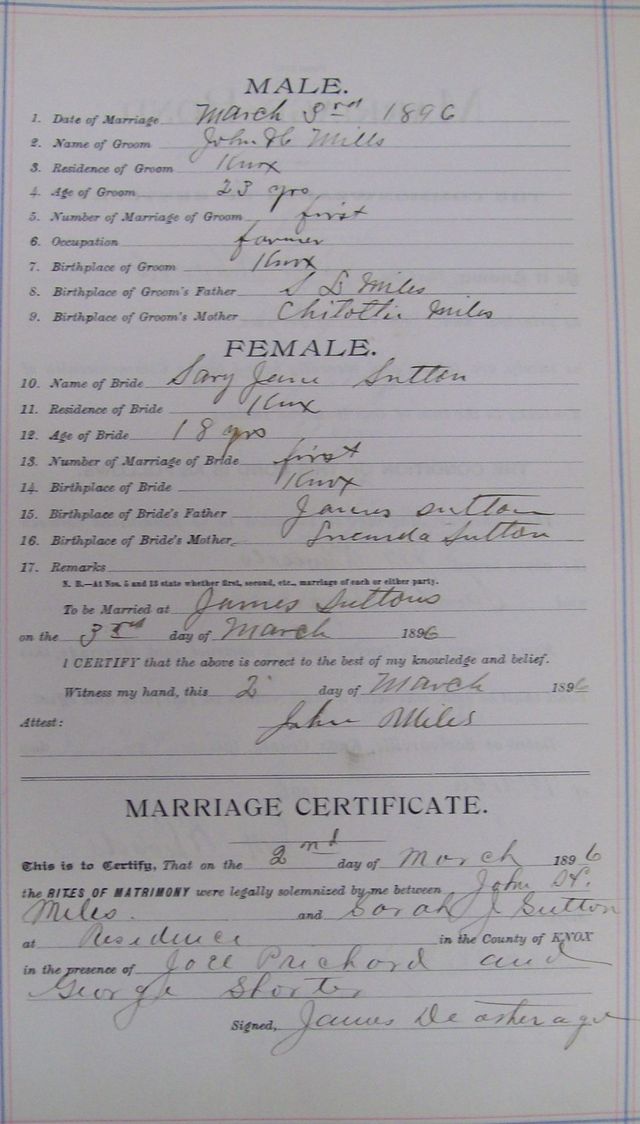 MALE.
1. Date of Marriage March 3rd 1896
2. Name of Groom John H Mills
3. Residence of Groom Knox
4. Age of Groom 23 yrs
5. Number of Marriage of Groom first
6. Occupation farmer
7. Birthplace of Groom Knox
8. Birthplace of Groom's Father S D Miles
9. Birthplace of Groom's Mother Miles
FEMALE.
10. Name of Bride Sary Jane Sutton
11. Residence of Bride Knox
12. Age of Bride 18 yrs
13. Number of Marriage of Bride first
14. Birthplace of Bride Knox
15. Birthplace of Bride's Father James Sutton
16. Birthplace of Bride's Mother Sutton
17. Remarks
N. B.—At Nos. 5 and 13 state whether first, second, etc., marriage of each or either party.
To be Married at James Suttons
on the 3rd day of March 1896
I CERTIFY that the above is correct to the best of my knowledge and belief.
Witness my hand, this 2 day of March 1896
Attest: John Miles
MARRIAGE CERTIFICATE.
This is to Certify, That on the 2nd day of March 1896
the RITES OF MATRIMONY were legally solemnized by me between John H.
Miles. and Sarah J Sutton
at Residence in the County of KNOX
in the presence of Joel Prichard and
George Shorter
Signed, James